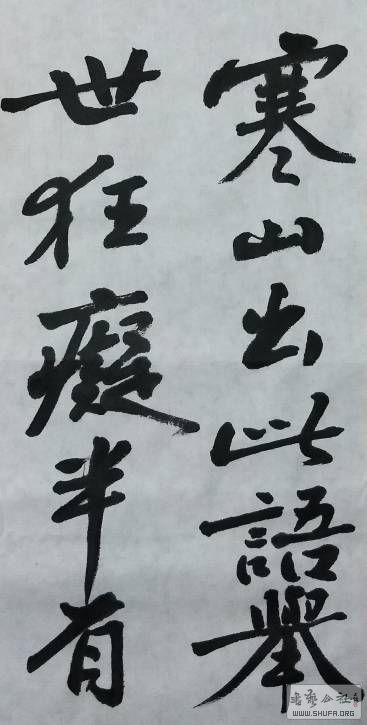 寒山出此語舉
世狂癡半有
書藝公社
WWW.SHUFA.ORG